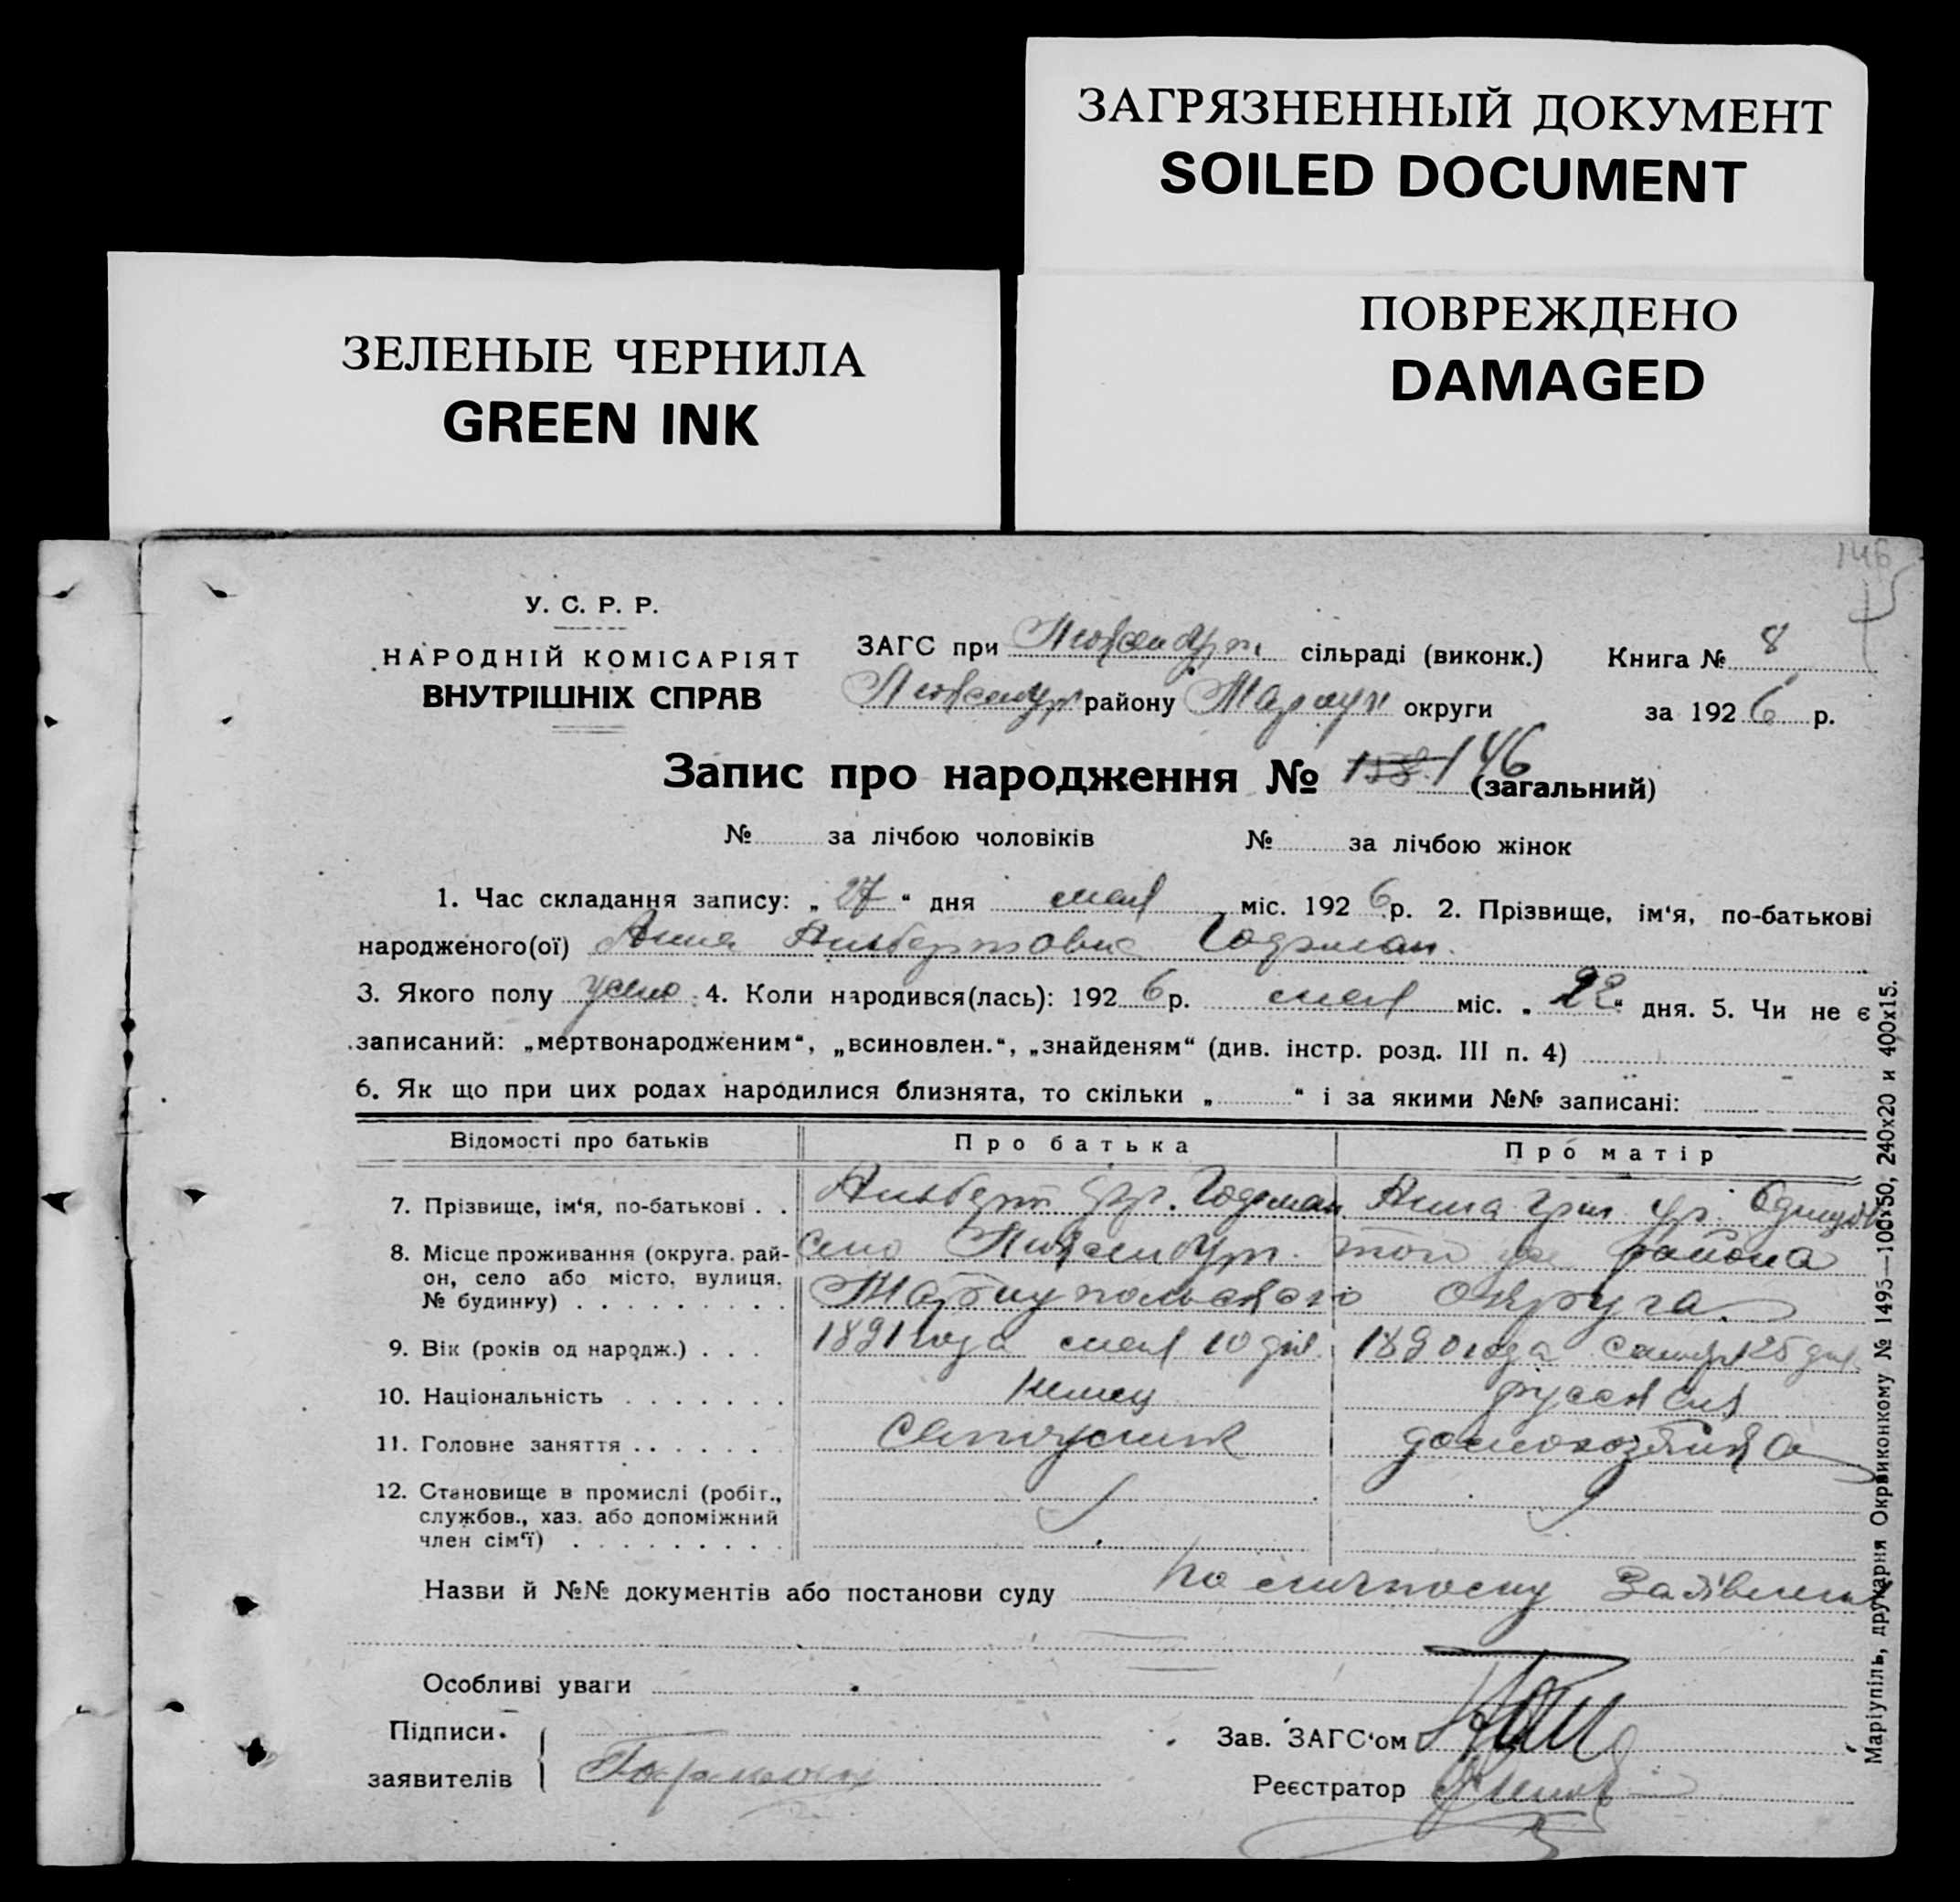 ЗАГРЯЗНЕННЫЙ ДОКУМЕНТ
SOILED DOCUMENT
ЗЕЛЕНЫЕ ЧЕРНИЛА
GREEN INK
ПОВРЕЖДЕНО
DAMAGED
146
У. С. Р. Р.
НАРОДНІЙ КОМІСАРІЯТ
ВНУТРІШНІХ СПРАВ
ЗАГС при Люксембург. сільраді (виконк.) Книга № 8
Люксембург району Мариуп округи за 1926 р.
Запис про народження № 158 146 (загальний)
№ за лічбою чоловіків № за лічбою жінок
1. Час складання запису: „27“ дня мая міс. 1926 р. 2. Прізвище, ім‘я, по-батькові
народженого(ої) Анна Альбертовна
3. Якого полу 4. Коли народився(лась): 1926 р. мая міс. „22“ дня. 5. Чи не є
записаний: „мертвонародженим“, „всиновлен.“, „знайденям“ (див. інстр. розд. III п. 4)
6. Як що при цих родах народилися близнята, то скільки „ “ і за якими №№ записані:
Відомості про батьків Про батька Про матір
7. Прізвище, ім‘я, по-батькові . . Альберт Анна Григ. ур.
8. Місце проживання (округа, рай-
он, село або місто, вулиця,
№ будинку) село Люксембург. того же района
Мариупольского Округа
9. Вік (років од народж.) 1891 года мая 10 дня. 1890 года 25 дня.
10. Національність Немец русская
11. Головне заняття домохозяйка
12. Становище в промислі (робіт.,
службов., хаз. або допоміжний
член сім‘ї)
Назви й №№ документів або постанови суду По личному Заявлению
Особливі уваги
Підписи
заявителів
Зав. ЗАГС‘ом
Реєстратор
Маріупіль, друкарня Окрвиконкому № 1495—100×50, 240х20 и 400х15.